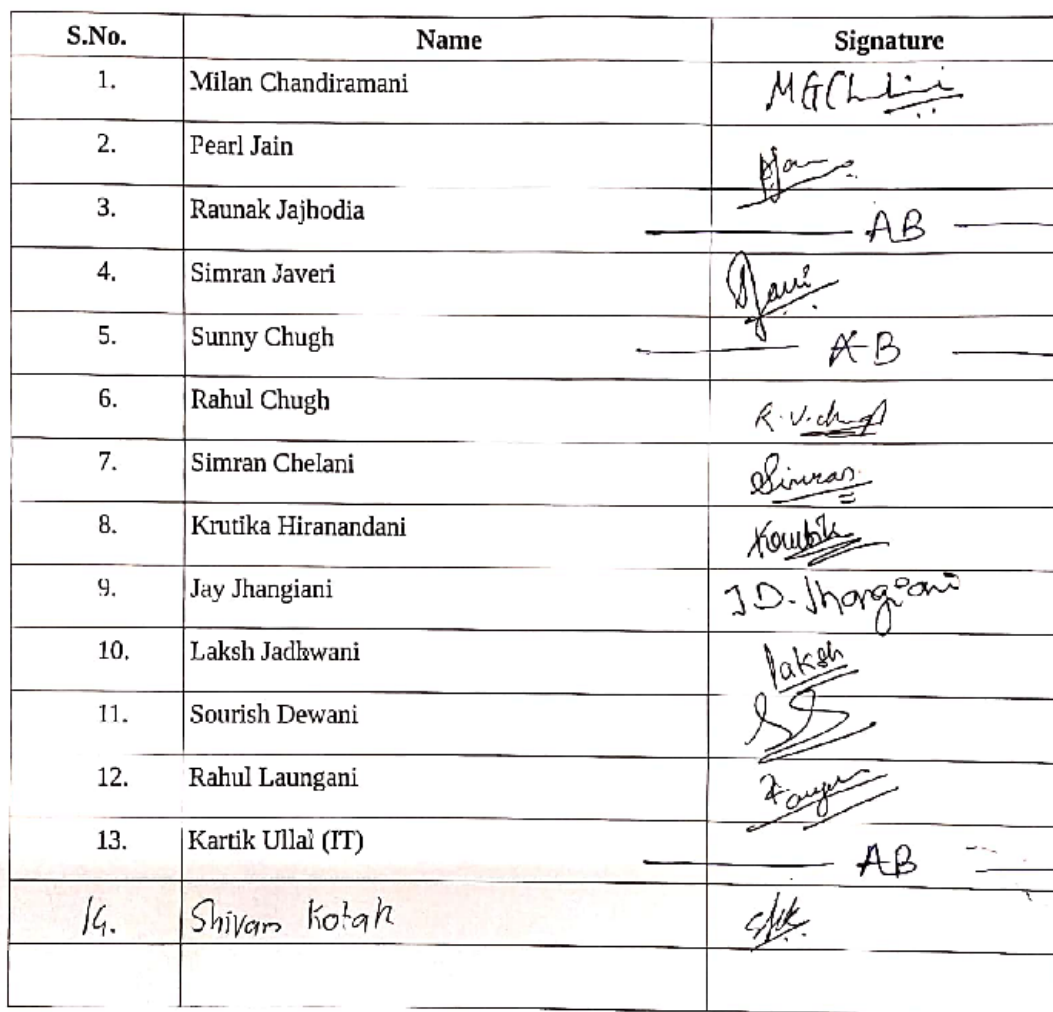 S.No. Name Signature
1. Milan Chandiramani
2. Pearl Jain
3. Raunak Jajhodia AB
4. Simran Javeri
5. Sunny Chugh AB
6. Rahul Chugh
7. Simran Chelani Simran
8. Krutika Hiranandani
9. Jay Jhangiani J.D. Jhangiani
10. Laksh Jadhwani laksh
11. Sourish Dewani
12. Rahul Laungani
13. Kartik Ullal (IT) AB
14. Shivam Kotak